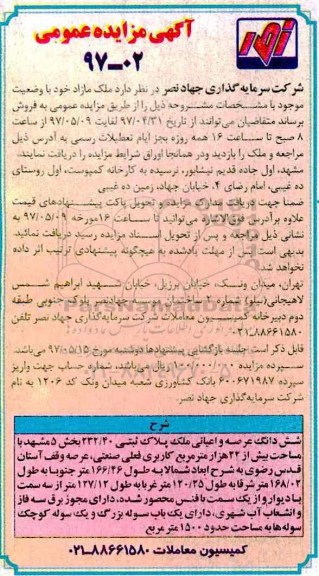 آگهی مزایده عمومی
۹۷-۰۲
شرکت سرمایه گذاری جهاد نصر در نظر دارد ملک مازاد خود با وضعیت
موجود با مشخصات مشروحه ذیل را از طریق مزایده عمومی به فروش
برساند متقاضیان می‌توانند از تاریخ ۹۷/۰۴/۳۱ لغایت ۹۷/۰۵/۰۹ از ساعت
۸ صبح تا ساعت ۱۶ همه روزه بجز ایام تعطیلات رسمی به آدرس ذیل
مراجعه و ملک را بازدید ودر همانجا اوراق شرایط مزایده را دریافت نمایند.
مشهد، اول جاده قدیم نیشابور، نرسیده به کارخانه کمپوست، اول روستای
ده غیبی، امام رضای ۴، خیابان جهاد، زمین ده غیبی
ضمنا جهت دریافت مدارک مزایده و تحویل پاکت پیشنهادهای قیمت
علاوه برآدرس فوق‌الاشاره می‌توانید تا ساعت ۱۶مورخه ۹۷/۰۵/۰۹ به
نشانی ذیل مراجعه و پس از تحویل اسناد مزایده رسید دریافت نمائید
بدیهی است پس از مهلت یادشده به هیچگونه پیشنهادی ترتیب اثر داده
نخواهد شد.
تهران، میدان ونک، خیابان برزیل، خیابان شهید ابراهیم شمس
لاهیجانی(نیلو) شماره ۲ ساختمان موسسه جهادنصر بلوک جنوبی طبقه
دوم دبیرخانه کمیسیون معاملات شرکت سرمایه‌گذاری جهاد نصر تلفن
۰۲۱-۸۸۶۶۱۵۸۰
قابل ذکر است جلسه بازگشایی پیشنهادها دوشنبه مورخ ۹۷/۰۵/۱۵ می‌باشد.
سپرده مزایده ریال می‌باشد، شماره حساب جهت واریز
سپرده ۶۰۰۶۷۱۹۸۷ بانک کشاورزی شعبه میدان ونک کد ۱۲۰۶ به نام
شرکت سرمایه‌گذاری جهاد نصر.
شرح
شش دانگ عرصه و اعیانی ملک پلاک ثبتی ۲۳۲/۴۰ بخش ۵ مشهد با
مساحت بیش از ۲۲ هزار مترمربع کاربری فعلی صنعتی، عرصه وقف آستان
قدس رضوی به شرح ابعاد شمالا به طول ۱۶۶/۴۶ متر جنوبا به طول
۱۶۸/۰۲ متر شرقا به طول ۱۲۰/۲۵ متر غربا به طول ۱۲۷/۱۲ متر از سه سمت
با دیوار و از یک سمت با فنس محصور شده، دارای مجوز برق سه فاز
و انشعاب آب شهری، دارای یک باب سوله بزرگ و یک سوله کوچک
سوله‌ها به مساحت حدود ۱۵۰۰ متر مربع
کمیسیون معاملات ۰۲۱-۸۸۶۶۱۵۸۰